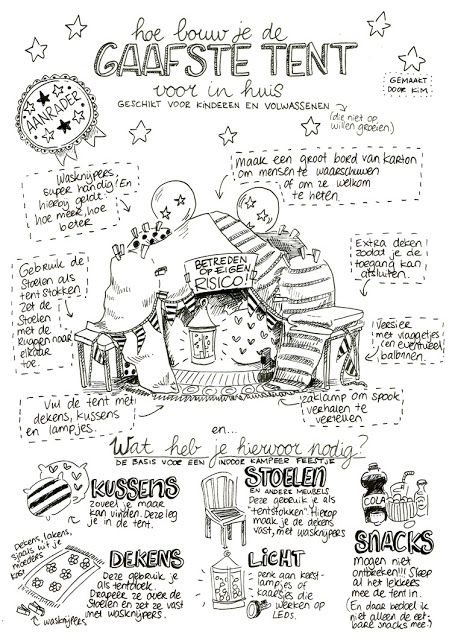 hoe bouw je de
GAAFSTE TENT
voor in huis
GESCHIKT VOOR KINDEREN EN VOLWASSENEN
(die niet op
willen groeien)
GEMAAKT
DOOR KIM
AANRADER
Wasknijpers,
super handig! En
hiervoor geldt:
hoe meer, hoe
beter
Maak een groot bord van karton
om mensen te waarschuwen
of om ze welkom
te heten.
Gebruik de
Stoelen als
tentstokken
zet de
Stoelen
met de
Ruggen naar
elkaar
toe.
BETREDEN
OP EIGEN
RISICO!
Extra deken
zodat je de
toegang kan
afsluiten.
Versier
met vlaggetjes
(en eventueel
ballonnen.
Vul de tent met
dekens, kussens
en lampjes.
zaklamp om spook
verhalen te
vertellen
en...
Wat heb je hiervoor nodig?
DE BASIS VOOR EEN INDOOR KAMPEER FEESTJE
KUSSENS
zoveel je maar
kan vinden. Deze leg
je in de tent.
STOELEN
EN ANDERE MEUBELS
Deze gebruik je als
"tentstokken" Hierop
maak je de dekens
vast, met wasknijpers
COLA
SNACKS
mogen niet
ontbreken!!! Sleep
al het lekkers
mee de tent in.
(En daar bedoel ik
niet alleen de eet-
bare snacks mee!)
Dekens, lakens,
sjaals uit je
moeders
kast
DEKENS
Deze gebruik je
als tentdoek.
Drapeer ze over de
Stoelen en zet ze vast
met wasknijpers.
wasknijpers
LICHT
Denk aan kerst-
lampjes of
kaarsjes die
werken op
LEDs.